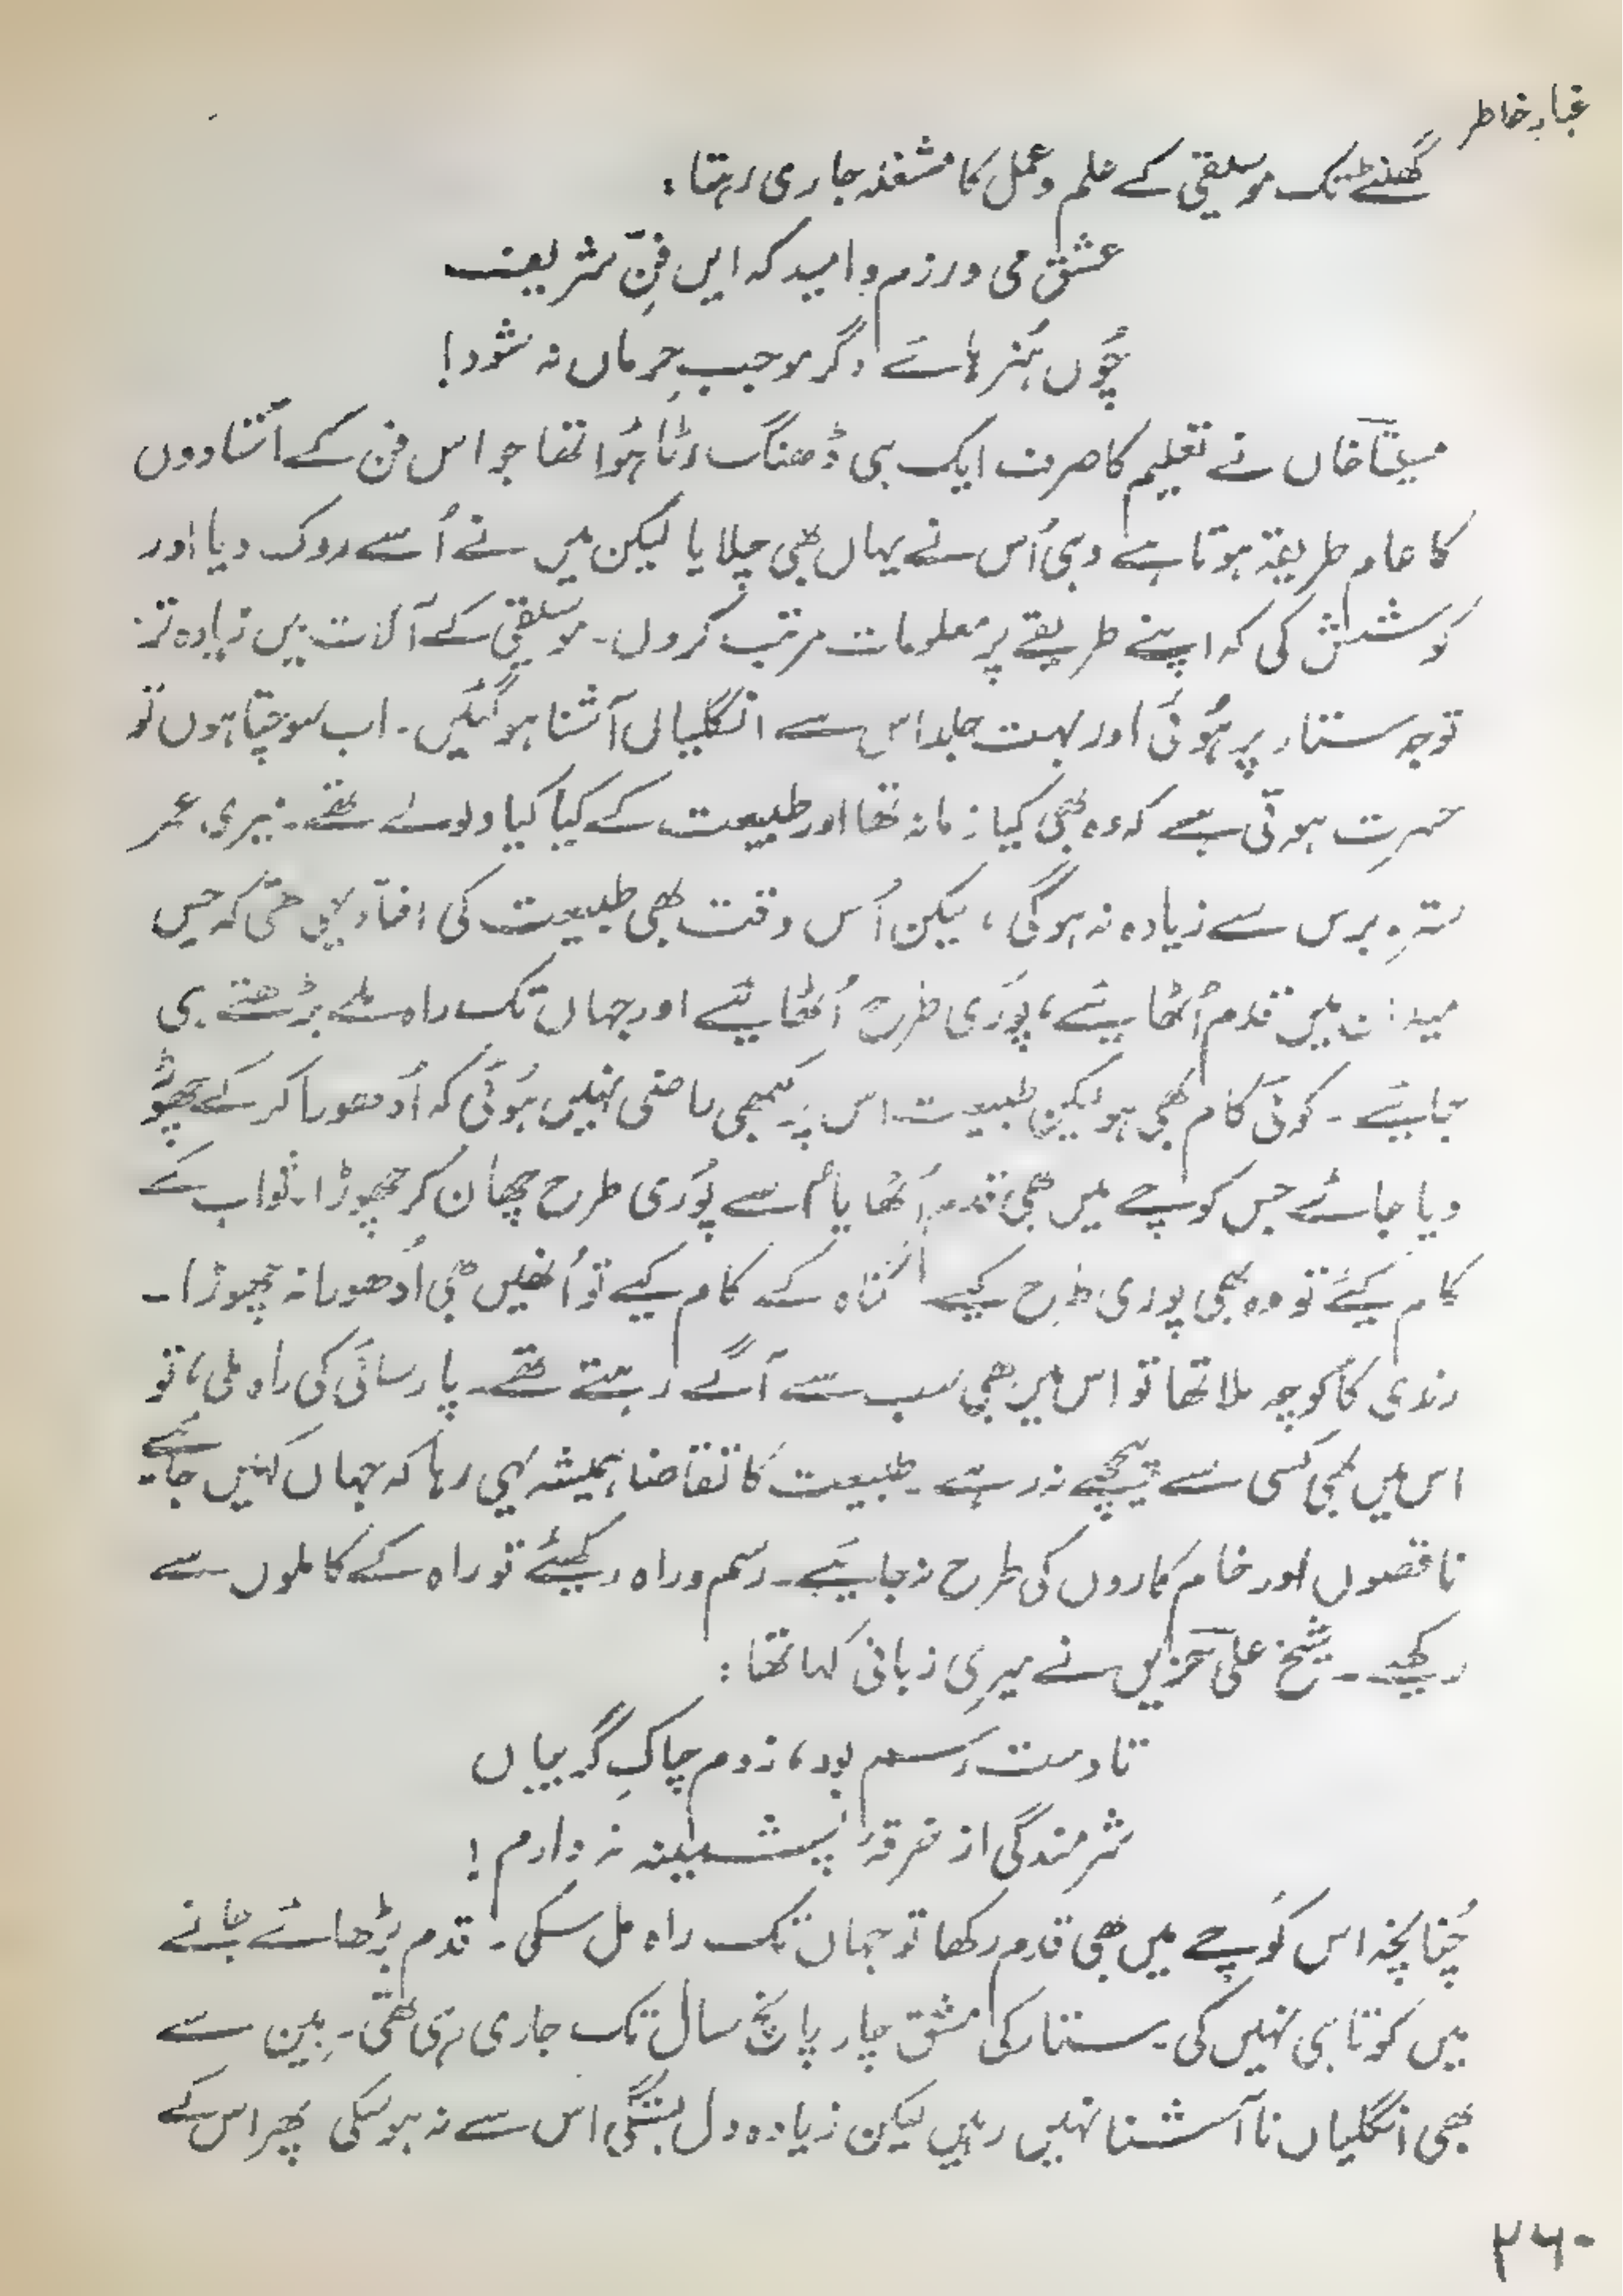 غبارِ خاطر
گھنٹے تک موسیقی کے علم و عمل کا مشغلہ جاری رہتا:
عشق می ورزم و امید کہ ایں فنِّ شریف
چُوں ہُنر ہائے دگر موجبِ حرماں نہ شود!
میتا خاں نے تعلیم کا صرف ایک ہی ڈھنگ رٹا ہُوا تھا جو اس فن کے اُستادوں
کا عام طریقہ ہوتا ہے وہی اُس نے یہاں بھی چلایا لیکن میں نے اُسے روک دیا اور
کوشش کی کہ اپنے طریقے پر معلومات مرتب کروں۔ موسیقی کے آلات میں زیادہ تر
توجہ ستار پر ہُوئی اور بہت جلد اس سے انگلیاں آشنا ہو گئیں۔ اب سوچتا ہوں تو
حیرت ہوتی ہے کہ وہ بھی کیا زمانہ تھا اور طبیعت کے کیا کیا ولولے تھے۔ میری عمر
سترہ برس سے زیادہ نہ ہو گی، لیکن اُس وقت بھی طبیعت کی افتاد یہی تھی کہ جس
میدان میں قدم اُٹھایئے، پوری طرح اُٹھایئے اور جہاں تک راہ ملے بڑھتے ہی
جایئے۔ کوئی کام بھی ہو لیکن طبیعت اس پر کبھی راضی نہیں ہُوئی کہ اُدھورا کر کے چھوڑ
دیا جائے جس کوچے میں بھی قدم اُٹھایا اُسے پُوری طرح چھان کر چھوڑا۔ ثواب کے
کام کیے تو وہ بھی پوری طرح کیے گناہ کے کام کیے تو اُنھیں بھی اُدھورا نہ چھوڑا۔
رندی کا کوچہ ملا تھا تو اس میں بھی سب سے آگے رہتے تھے۔ پارسائی کی راہ ملی، تو
اس میں بھی کسی سے پیچھے نہ رہے۔ طبیعت کا تقاضا ہمیشہ یہی رہا کہ جہاں کہیں جایئے
ناقصوں اور خام کاروں کی طرح نہ جایئے۔ رسم و راہ رکھیئے تو راہ کے کاملوں سے
رکھیے۔ شیخ علی حزیں نے میری زبانی کہا تھا:
تا دست رسم بود، زدم چاکِ گریباں
شرمندگی از خرقۂ پشمینہ نہ دارم!
چُنانچہ اس کُوچے میں بھی قدم رکھا تو جہاں تک راہ مل سکی۔ قدم بڑھائے جانے
میں کوتاہی نہیں کی۔ ستار کی مشق چار پانچ سال تک جاری رہی تھی۔ بِین سے
بھی انگلیاں نا آشنا نہیں رہیں لیکن زیادہ دل بستگی اس سے نہ ہو سکی پھر اس کے
۲۶۰